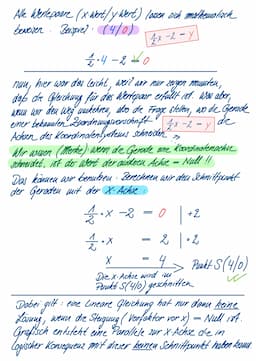 Alle Wertepaare (x Wert/y Wert) lassen sich mathematisch
beweisen. Beispiel: (4/0) ½x-2=y
½·4-2=0
nun, hier war das leicht, weil wir nur zeigen mussten,
daß die Gleichung für das Wertepaar erfüllt ist. Was aber,
wenn wir den Weg möchten, also die Frage stellen, wo die Gerade
einer bekannten Zuordnungsvorschrift ½x-2=y die
Achsen des Koordinatensystems schneidet?
Wir wissen (Merke): wenn die Gerade eine Koordinatenachse
schneidet, ist der Wert der anderen Achse = Null!!
Das können wir benutzen: Berechnen wir den Schnittpunkt
der Geraden mit der x-Achse
½·x-2=0 |+2
½·x=2 |·2
x=4 → Punkt S(4/0)
Die x-Achse wird im
Punkt S(4/0) geschnitten
Dabei gilt: eine Lineare Gleichung hat nur dann keine
Lösung, wenn die Steigung (Vorfaktor vor x) = Null ist.
Grafisch entsteht eine Parallele zur x-Achse die in
logischer Konsequenz mit dieser keinen Schnittpunkt haben kann